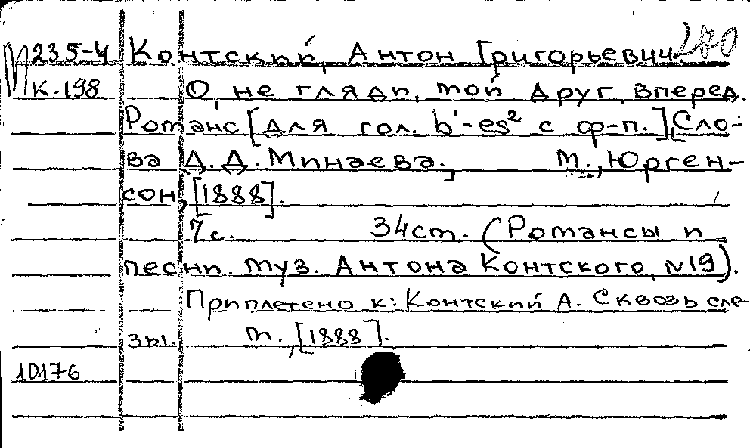 280
М 235-4 Контский, Антон Григорьевич.
К. 198 О, не гляди, мой друг, вперед.
Романс [для гол. b'-es² с ф-п.]. Сло-
ва Д. Д. Минаева. М., Юрген-
сон, [1888].
7 с. 34 см. (Романсы и
песни. муз. Антона Контского, №19).
Приплетено к: Контский А. Сквозь сле-
зы. М., [1888].
10176